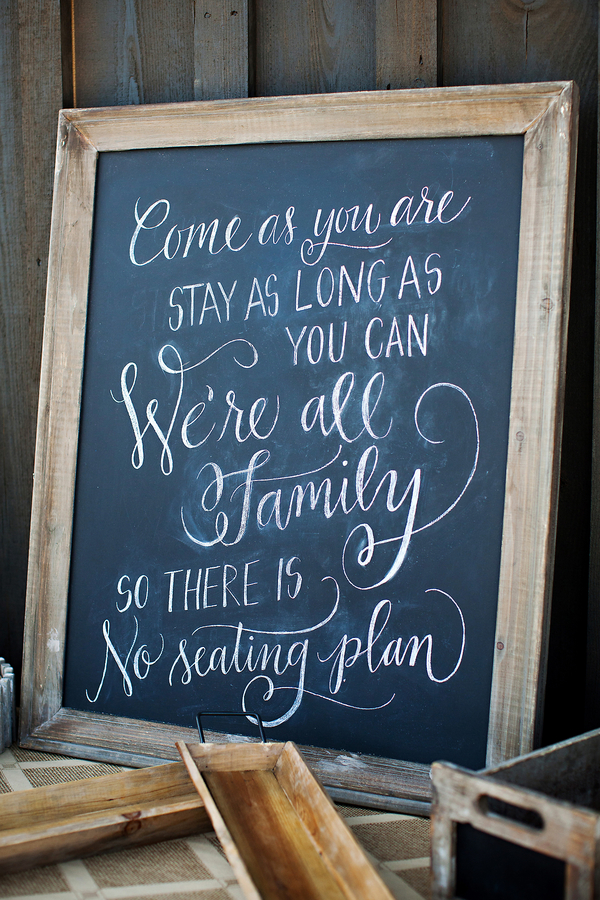 Come as you are
STAY AS LONG AS
YOU CAN
We're all
Family
SO THERE IS
No seating plan